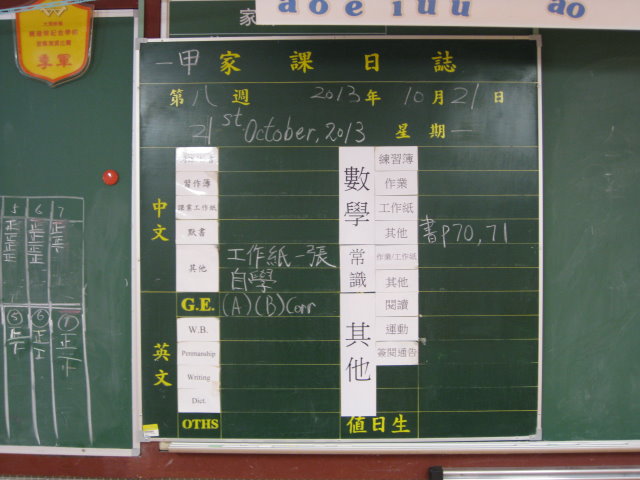 家
a o e i u u
ao
季軍
一甲家課日誌
第八週 2013年10月21日
21st October, 2013 星期一
中文
習作簿
課業工作紙
默書
其他 工作紙一張
自學
英文
G.E. (A)(B)Corr
W.B.
Penmanship
Writing
Dict.
OTHS
數學
練習簿
作業
工作紙
其他 書p70,71
常識
作業/工作紙
其他
其他
閱讀
運動
簽閱通告
值日生
5 6 7
正 正 正
⑤ ⑥ ⑦